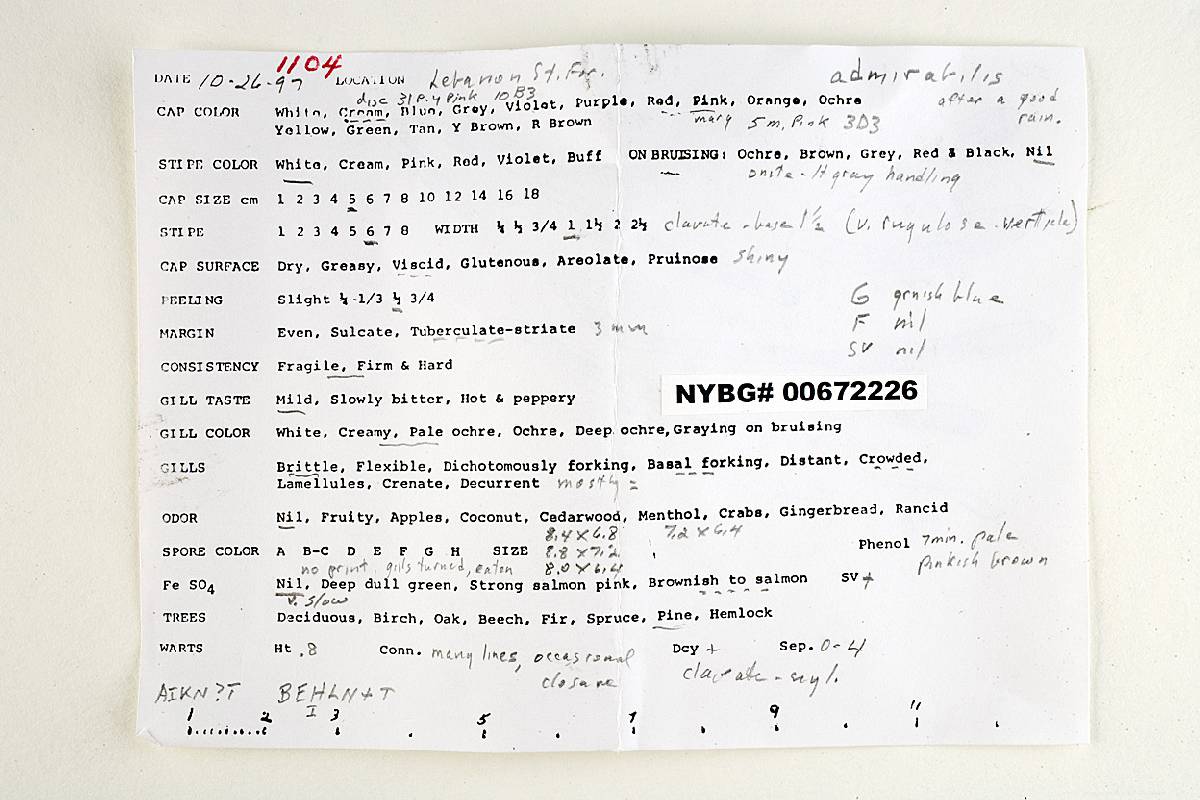 1104
DATE 10-26-97 LOCATION Lebanon St. For. admirabilis
disc 31 Pink 10 B3 after a good rain.
CAP COLOR White, Cream, Blue, Grey, Violet, Purple, Red, Pink, Orange, Ochre
Yellow, Green, Tan, Y Brown, R Brown marg 5 m. Pink 3D3
STIPE COLOR White, Cream, Pink, Red, Violet, Buff ON BRUISING: Ochre, Brown, Grey, Red & Black, Nil
onsite - lt gray handling
CAP SIZE cm 1 2 3 4 5 6 7 8 10 12 14 16 18
STIPE 1 2 3 4 5 6 7 8 WIDTH ¼ ½ 3/4 1 1½ 2 2½ clavate - base 1½ (v. rugulose - vertical)
CAP SURFACE Dry, Greasy, Viscid, Glutenous, Areolate, Pruinose shiny
PEELING Slight ¼-1/3 ½ 3/4 G grnish blue
F nil
MARGIN Even, Sulcate, Tuberculate-striate 3 mm
SV nil
CONSISTENCY Fragile, Firm & Hard
NYBG# 00672226
GILL TASTE Mild, Slowly bitter, Hot & peppery
GILL COLOR White, Creamy, Pale ochre, Ochre, Deep ochre, Graying on bruising
GILLS Brittle, Flexible, Dichotomously forking, Basal forking, Distant, Crowded,
Lamellules, Crenate, Decurrent mostly =
ODOR Nil, Fruity, Apples, Coconut, Cedarwood, Menthol, Crabs, Gingerbread, Rancid
8.4 x 6.8 7.2 x 6.4
SPORE COLOR A B-C D E F G H SIZE 8.8 x 7.2 Phenol 7min. pale
no print gills turned, eaten 8.0 x 6.4 pinkish brown
Fe SO4 Nil, Deep dull green, Strong salmon pink, Brownish to salmon SV +
v. slow
TREES Deciduous, Birch, Oak, Beech, Fir, Spruce, Pine, Hemlock
WARTS Ht .8 Conn. many lines, occasional Dcy + Sep. 0-4
closure clavate - cyl.
AIKN?T BEHLN+T
I
1 2 3 5 7 9 11